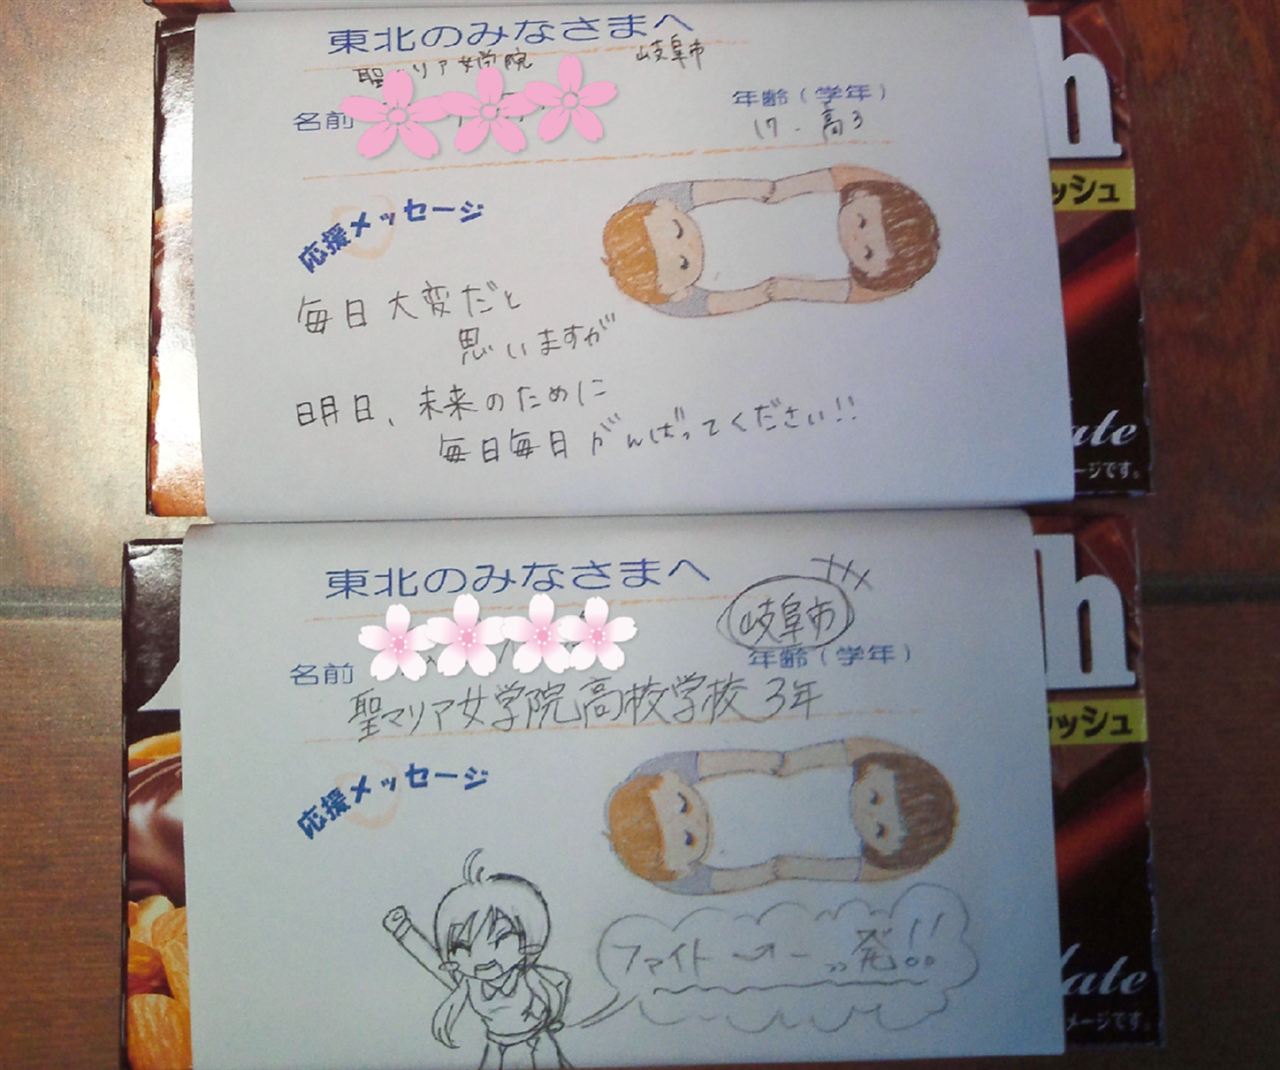 東北のみなさまへ
聖マリア女学院 岐阜市
名前 年齢(学年)
17・高3
応援メッセージ
毎日大変だと
思いますが
明日、未来のために
毎日毎日がんばってください!!
h
ッシュ
late
ージです。
東北のみなさまへ
岐阜市
名前 年齢(学年)
聖マリア女学院高校学校 3年
応援メッセージ
ファイトー 発!!
h
ラッシュ
late
メージです。